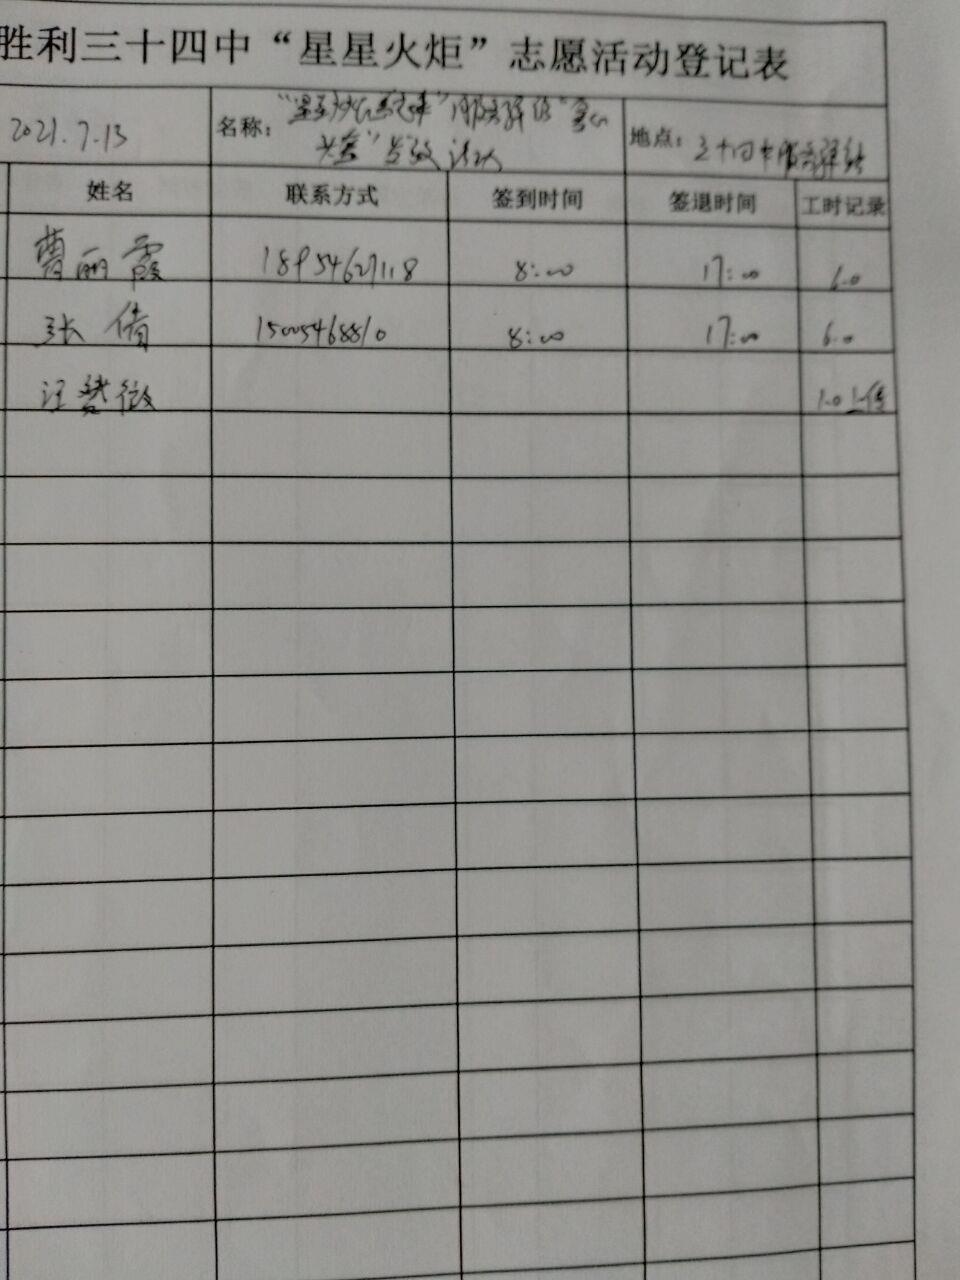 胜利三十四中“星星火炬”志愿活动登记表
2021.7.13
名称：“星星火炬志愿”服务驿站“童心
地点：三十四中服务驿站
姓名 联系方式 签到时间 签退时间 工时记录
曹丽霞 18954627118 8:00 17:00 6.0
张倩 15005468810 8:00 17:00 6.0
汪 薇 1.0上传